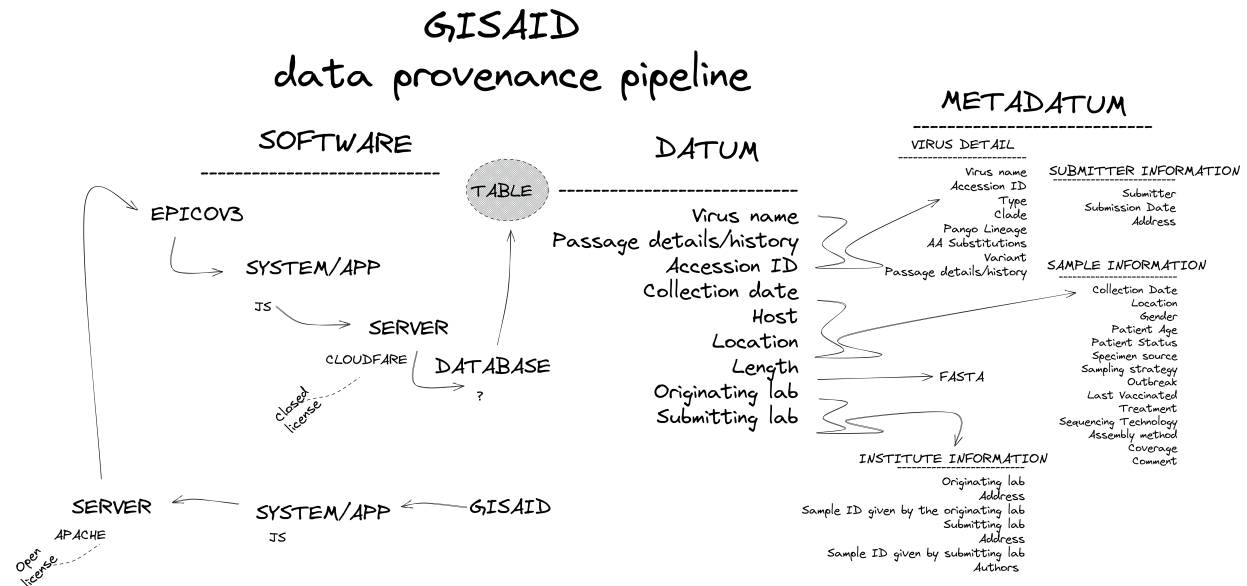 GISAID
data provenance pipeline
SOFTWARE
EPICOV3
SYSTEM/APP
JS
SERVER
CLOUDFARE
closed
license
DATABASE
?
TABLE
GISAID
SYSTEM/APP
JS
SERVER
APACHE
Open
license
DATUM
Virus name
Passage details/history
Accession ID
Collection date
Host
Location
Length
Originating lab
Submitting lab
METADATUM
VIRUS DETAIL
Virus name
Accession ID
Type
Clade
Pango Lineage
AA Substitutions
Variant
Passage details/history
SUBMITTER INFORMATION
Submitter
Submission Date
Address
SAMPLE INFORMATION
Collection Date
Location
Gender
Patient Age
Patient Status
Specimen source
Sampling strategy
Outbreak
Last Vaccinated
Treatment
Sequencing Technology
Assembly method
Coverage
Comment
FASTA
INSTITUTE INFORMATION
Originating lab
Address
Sample ID given by the originating lab
Submitting lab
Address
Sample ID given by submitting lab
Authors